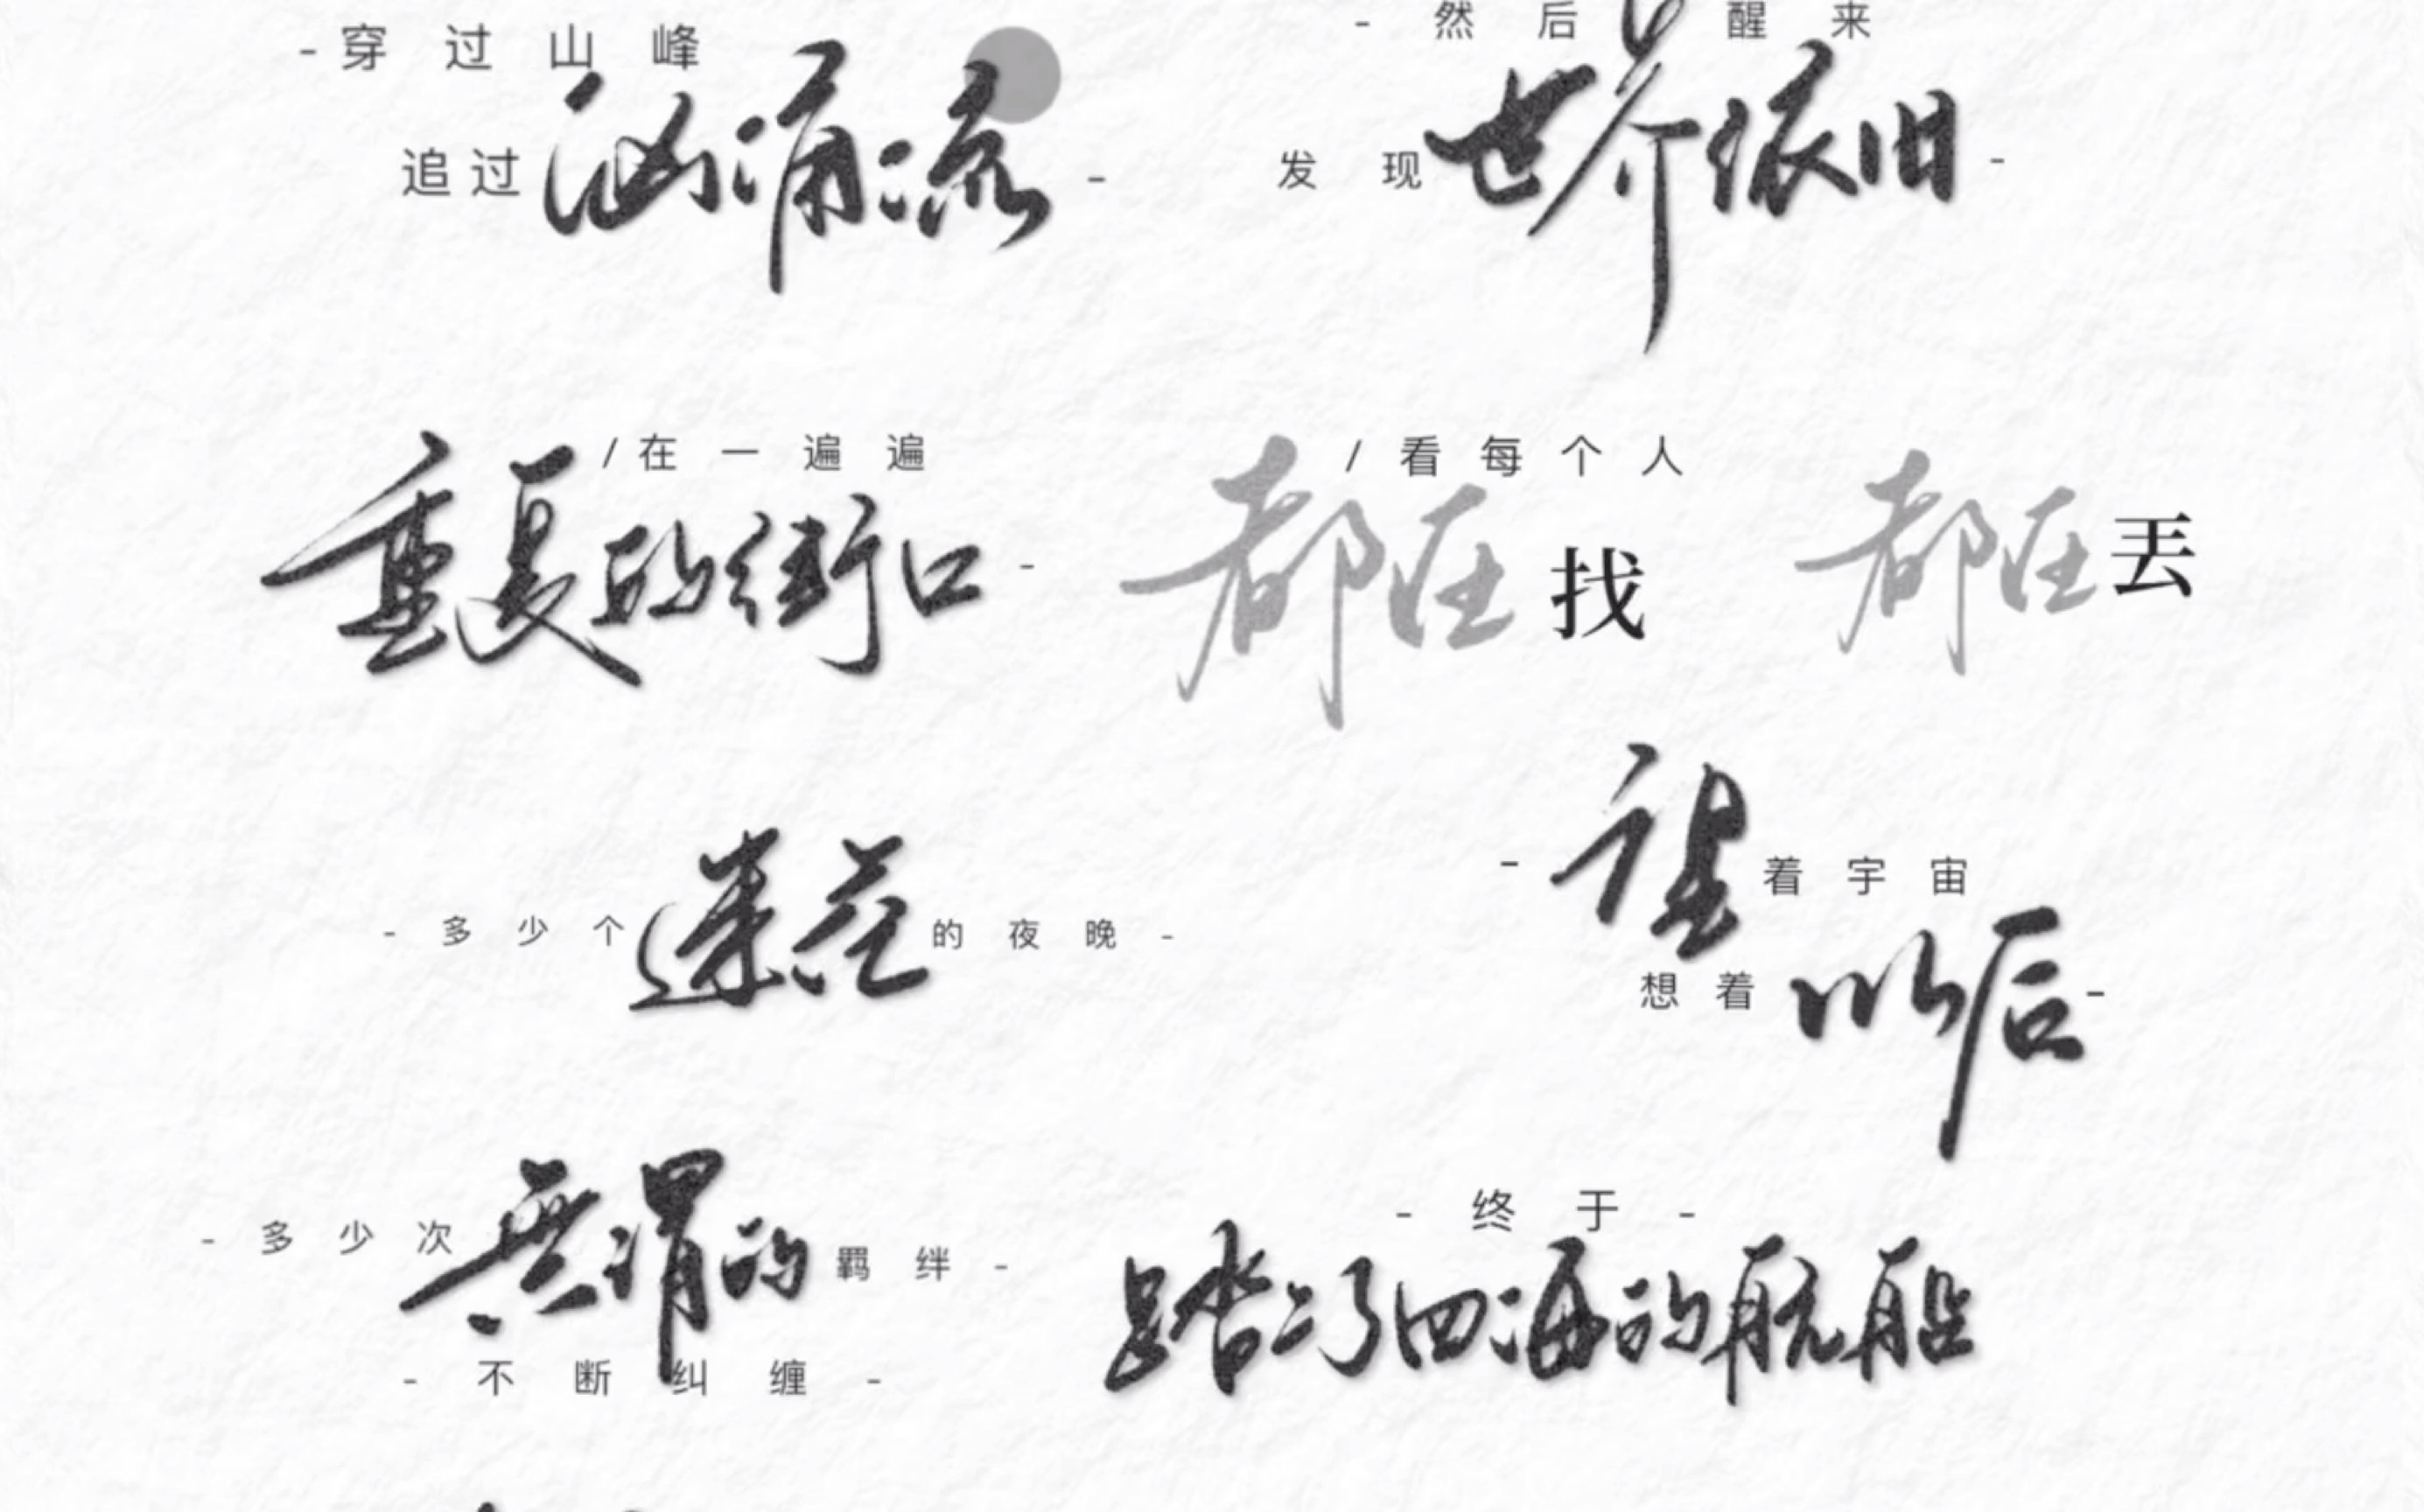 -穿过山峰
追过汹涌流-
-然后醒来
发现世界依旧-
/在一遍遍
重复的街口-
/看每个人
都在找 都在丢
-多少个迷茫的夜晚-
-望着宇宙
想着以后-
-多少次无谓的羁绊-
-不断纠缠-
-终于-
踏上了四海的航船